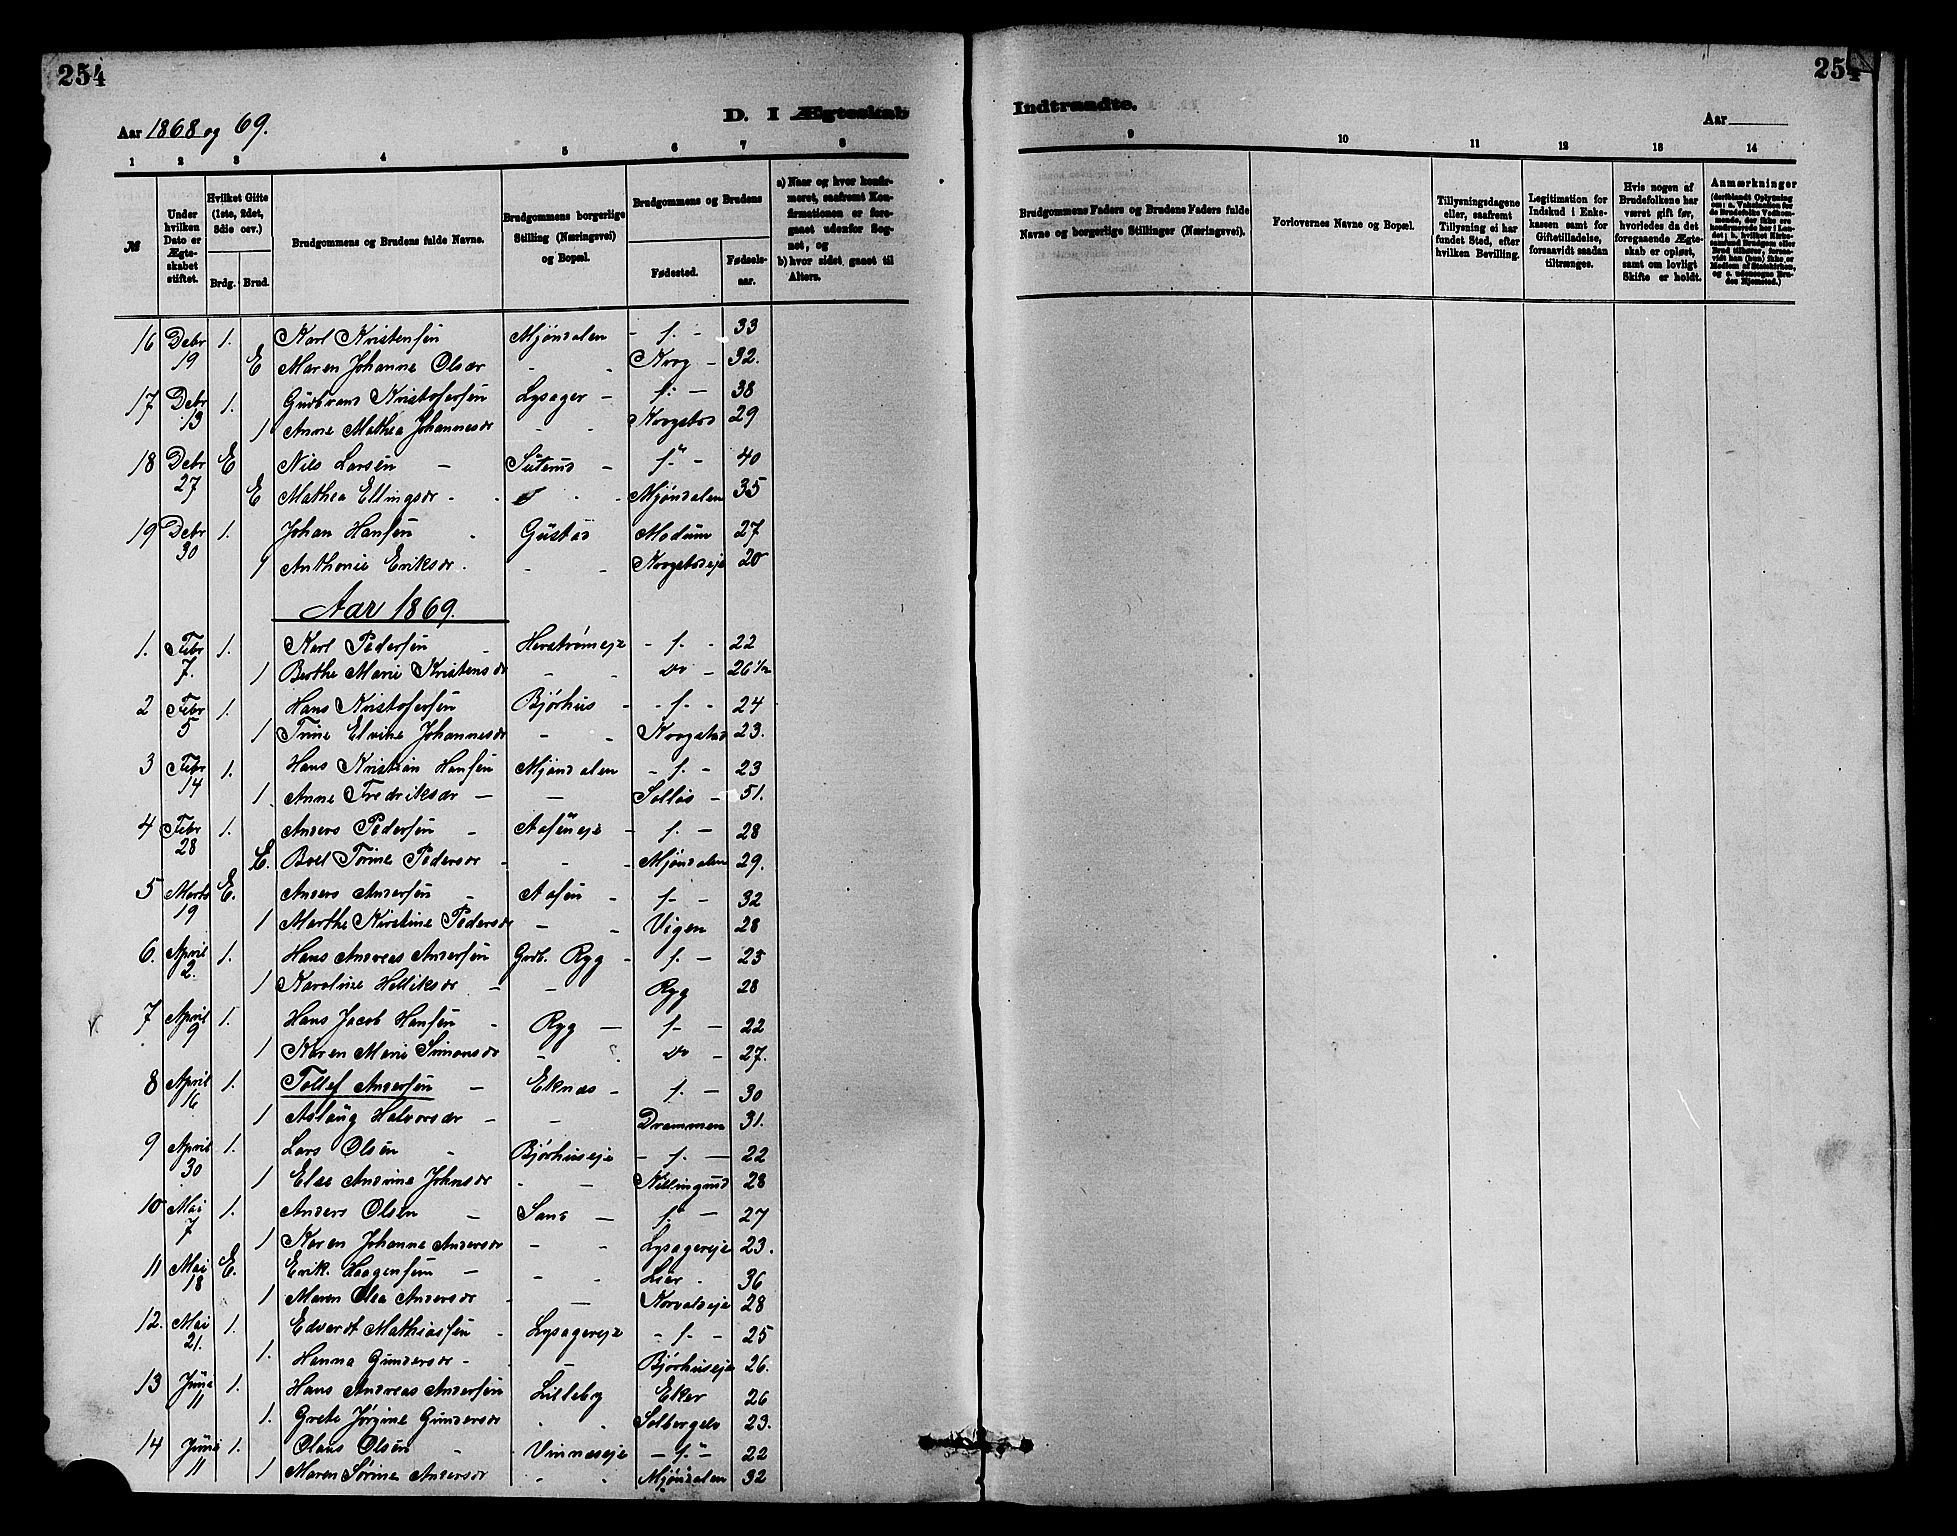 254
254
Aar 1868 og 69.
D. I Ægteskab Indtraadte.
Aar
1 2 3 4 5 6 7 8 9 10 11 12 13 14
№
Under hvilken Dato er Ægteskabet stiftet.
Hvilket Gifte (1ste, 2det, 3die osv.)
Brdg. Brud.
Brudgommens og Brudens fulde Navne.
Brudgommens borgerlige Stilling (Næringsvei) og Bopæl.
Brudgommens og Brudens
Fødested.
Fødselsaar.
a) Naar og hvor konfirmeret, saafremt Konfirmationen er foregaaet udenfor Sognet, og
b) hvor sidst gaaet til Alters.
Brudgommens Faders og Brudens Faders fulde Navne og borgerlige Stillinger (Næringsvei).
Forlovernes Navne og Bopæl.
Tillysningsdagene eller, saafremt Tillysning ei har fundet Sted, efter hvilken Bevilling.
Legitimation for Indskud i Enkekassen samt for Giftetilladelse, forsaavidt saadan tiltrænges.
Hvis nogen af Brudefolkene har været gift før, hvorledes da det foregaaende Ægteskab er opløst, samt om lovligt Skifte er holdt.
Anmærkninger
16 Debr 19 1. Karl Kristensen Mjøndalen - f. - 33
E Maren Johanne Olsdr - - Krog - 32.
17 Debr 13 1. Gudbrand Kristofersen Lysager - f. - 38
1 Anne Mathea Johannesdr - - Krogstad 29
18 Debr 27 E Nils Larsen - - f. - 40
E Mathea Ellingsdr - - Mjøndalen 35
19 Debr 30 1. Johan Hansen - Gustad Modum 27
1 Anthonie Eriksdr. - - Krogstadeje 20
Aar 1869.
1. Febr 7. 1. Karl Pedersen - Herstrømeje - f. - 22
1 Berthe Marie Kristensdr - - do - 26 1/2
2 Febr 5 1. Hans Kristofersen Bjørhus - - f. - 24
1 Trine Elvine Johannesdr - - Krogstad 23.
3 Febr 14 1. Hans Kristian Hansen Mjøndalen - f. - 23
1. Anne Fredriksdr - - Solløs - 51.
4 Febr 28 1. Anders Pedersen - Aaseneje - f. - 28
E. Boel Torine Pedersdr - - - Mjøndalen 29.
5 Marts 19 E. Anders Andersen - Aasen - f. - 32
1 Marthe Kirstine Pedersdr - - Vigen 28
6. April 2. 1. Hans Andreas Andersen Grdb. Ryg - f. - 25
1 Karoline Helliksdr - - Ryg 28
7 April 9 1. Hans Jacob Hansen - Ryg - f. - 22
1 Karen Marie Simonsdr - do - 27.
8 April 16 1. Tollef Andersen - Eknæs - f. - 30
1 Aslaug Halvorsdr - - Drammen 31.
9 April 30 1. Lars Olsen - Bjørhuseje - f. - 22
1 Else Andrine Johnsdr - - 28
10 Mai 7 1. Anders Olsen - Sand - f. - 27
1 Karen Johanne Andersdr - - Lysagereje 23.
11 Mai 18 E. Erik Haagensen - - - Lier - 36
1 Maren Olea Andersdr - - Horvaldseje 28
12. Mai 21. 1. Edvardt Mathiassen - Lysagereje - f. - 25
1. Hanna Gundersdr - - Bjørhuseje 26.
13 Juni 11 1. Hans Andreas Andersen Lilleby Eker 26
1. Grete Jørgine Gundersdr - - Solbergelv 23.
14 Juni 11 1. Olaus Olsen - Vinnæseje - f. - 22
1 Maren Sørine Andersdr - - Mjøndalen 32